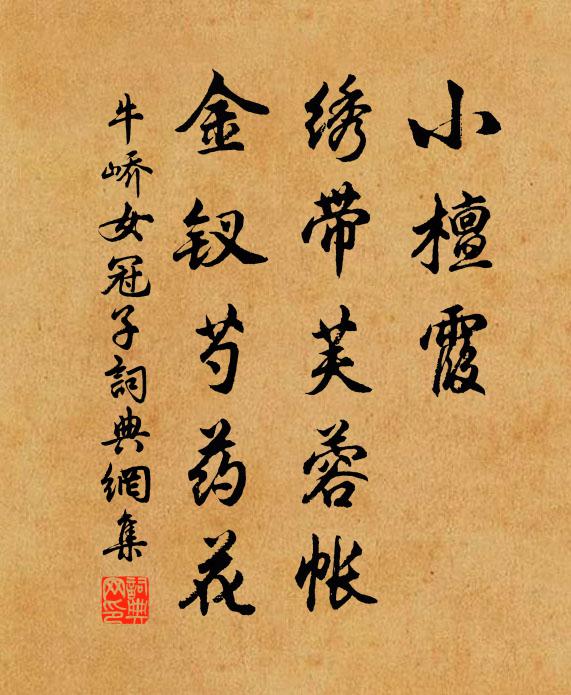 小檀霞
绣带芙蓉帐
金钗芍药花
牛峤女冠子詞典網集
詞典网印